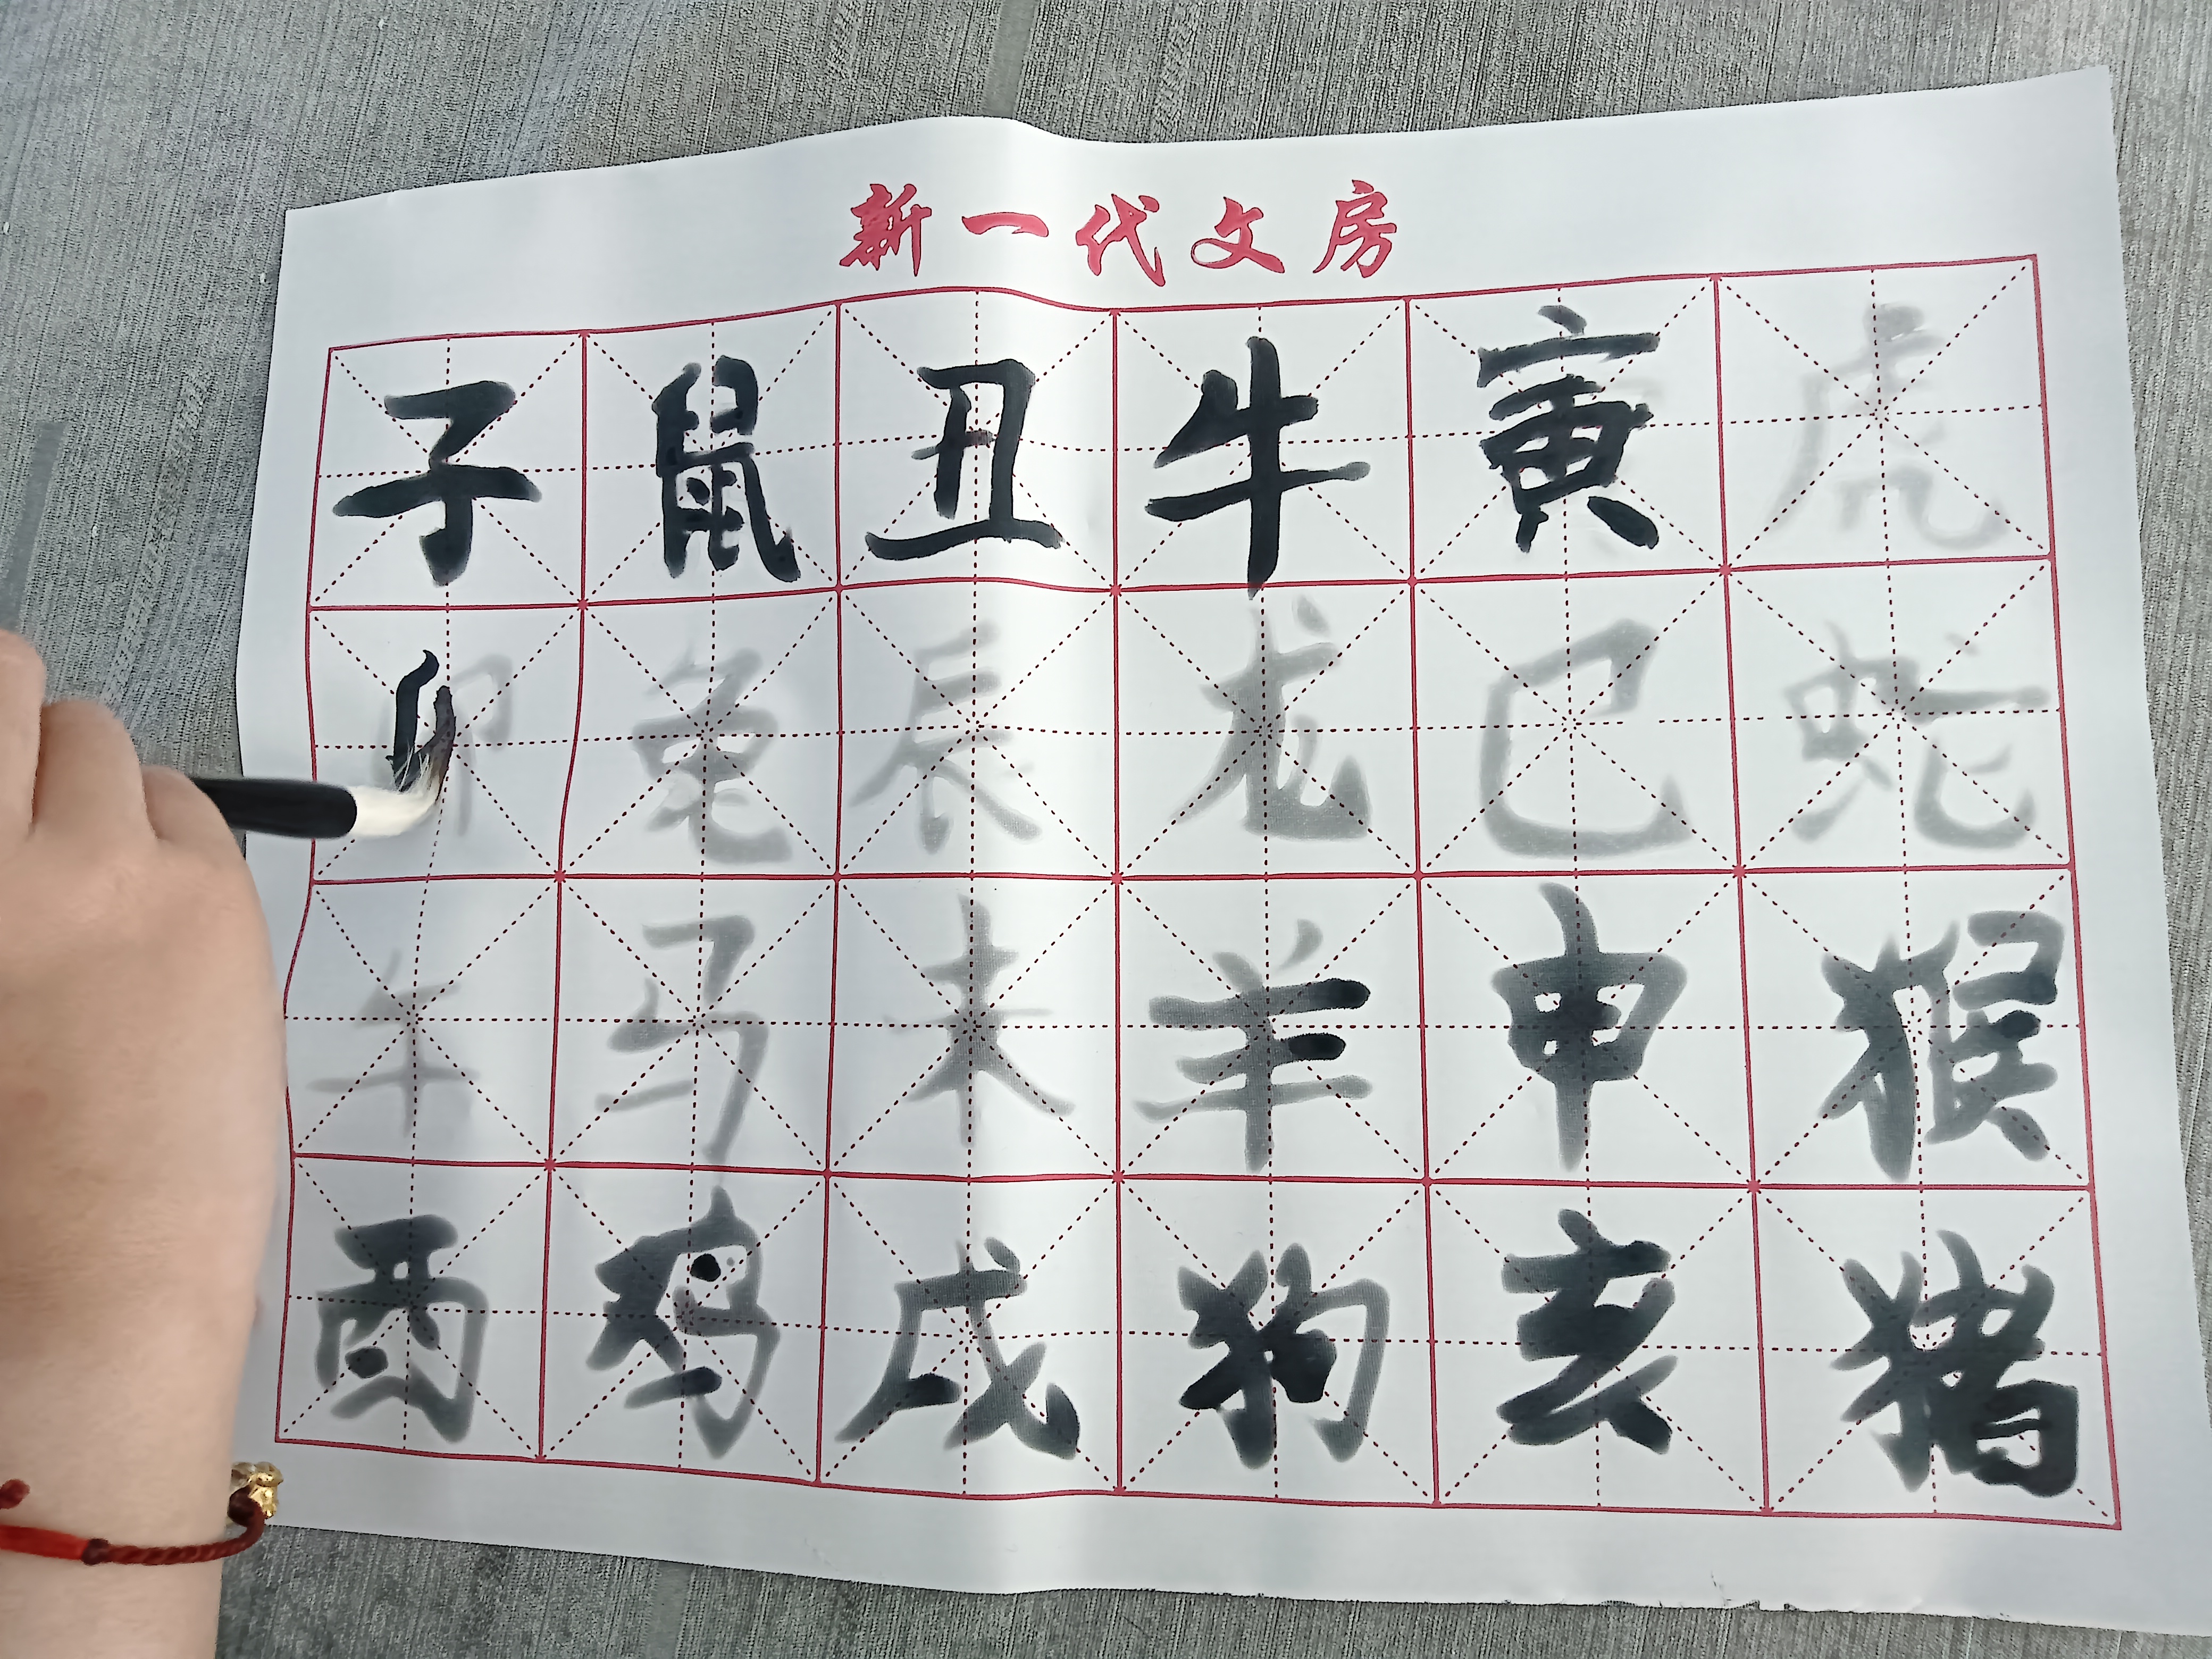 新一代文房
子鼠丑牛寅虎
卯兔辰龙巳蛇
午马未羊申猴
酉鸡戌狗亥猪